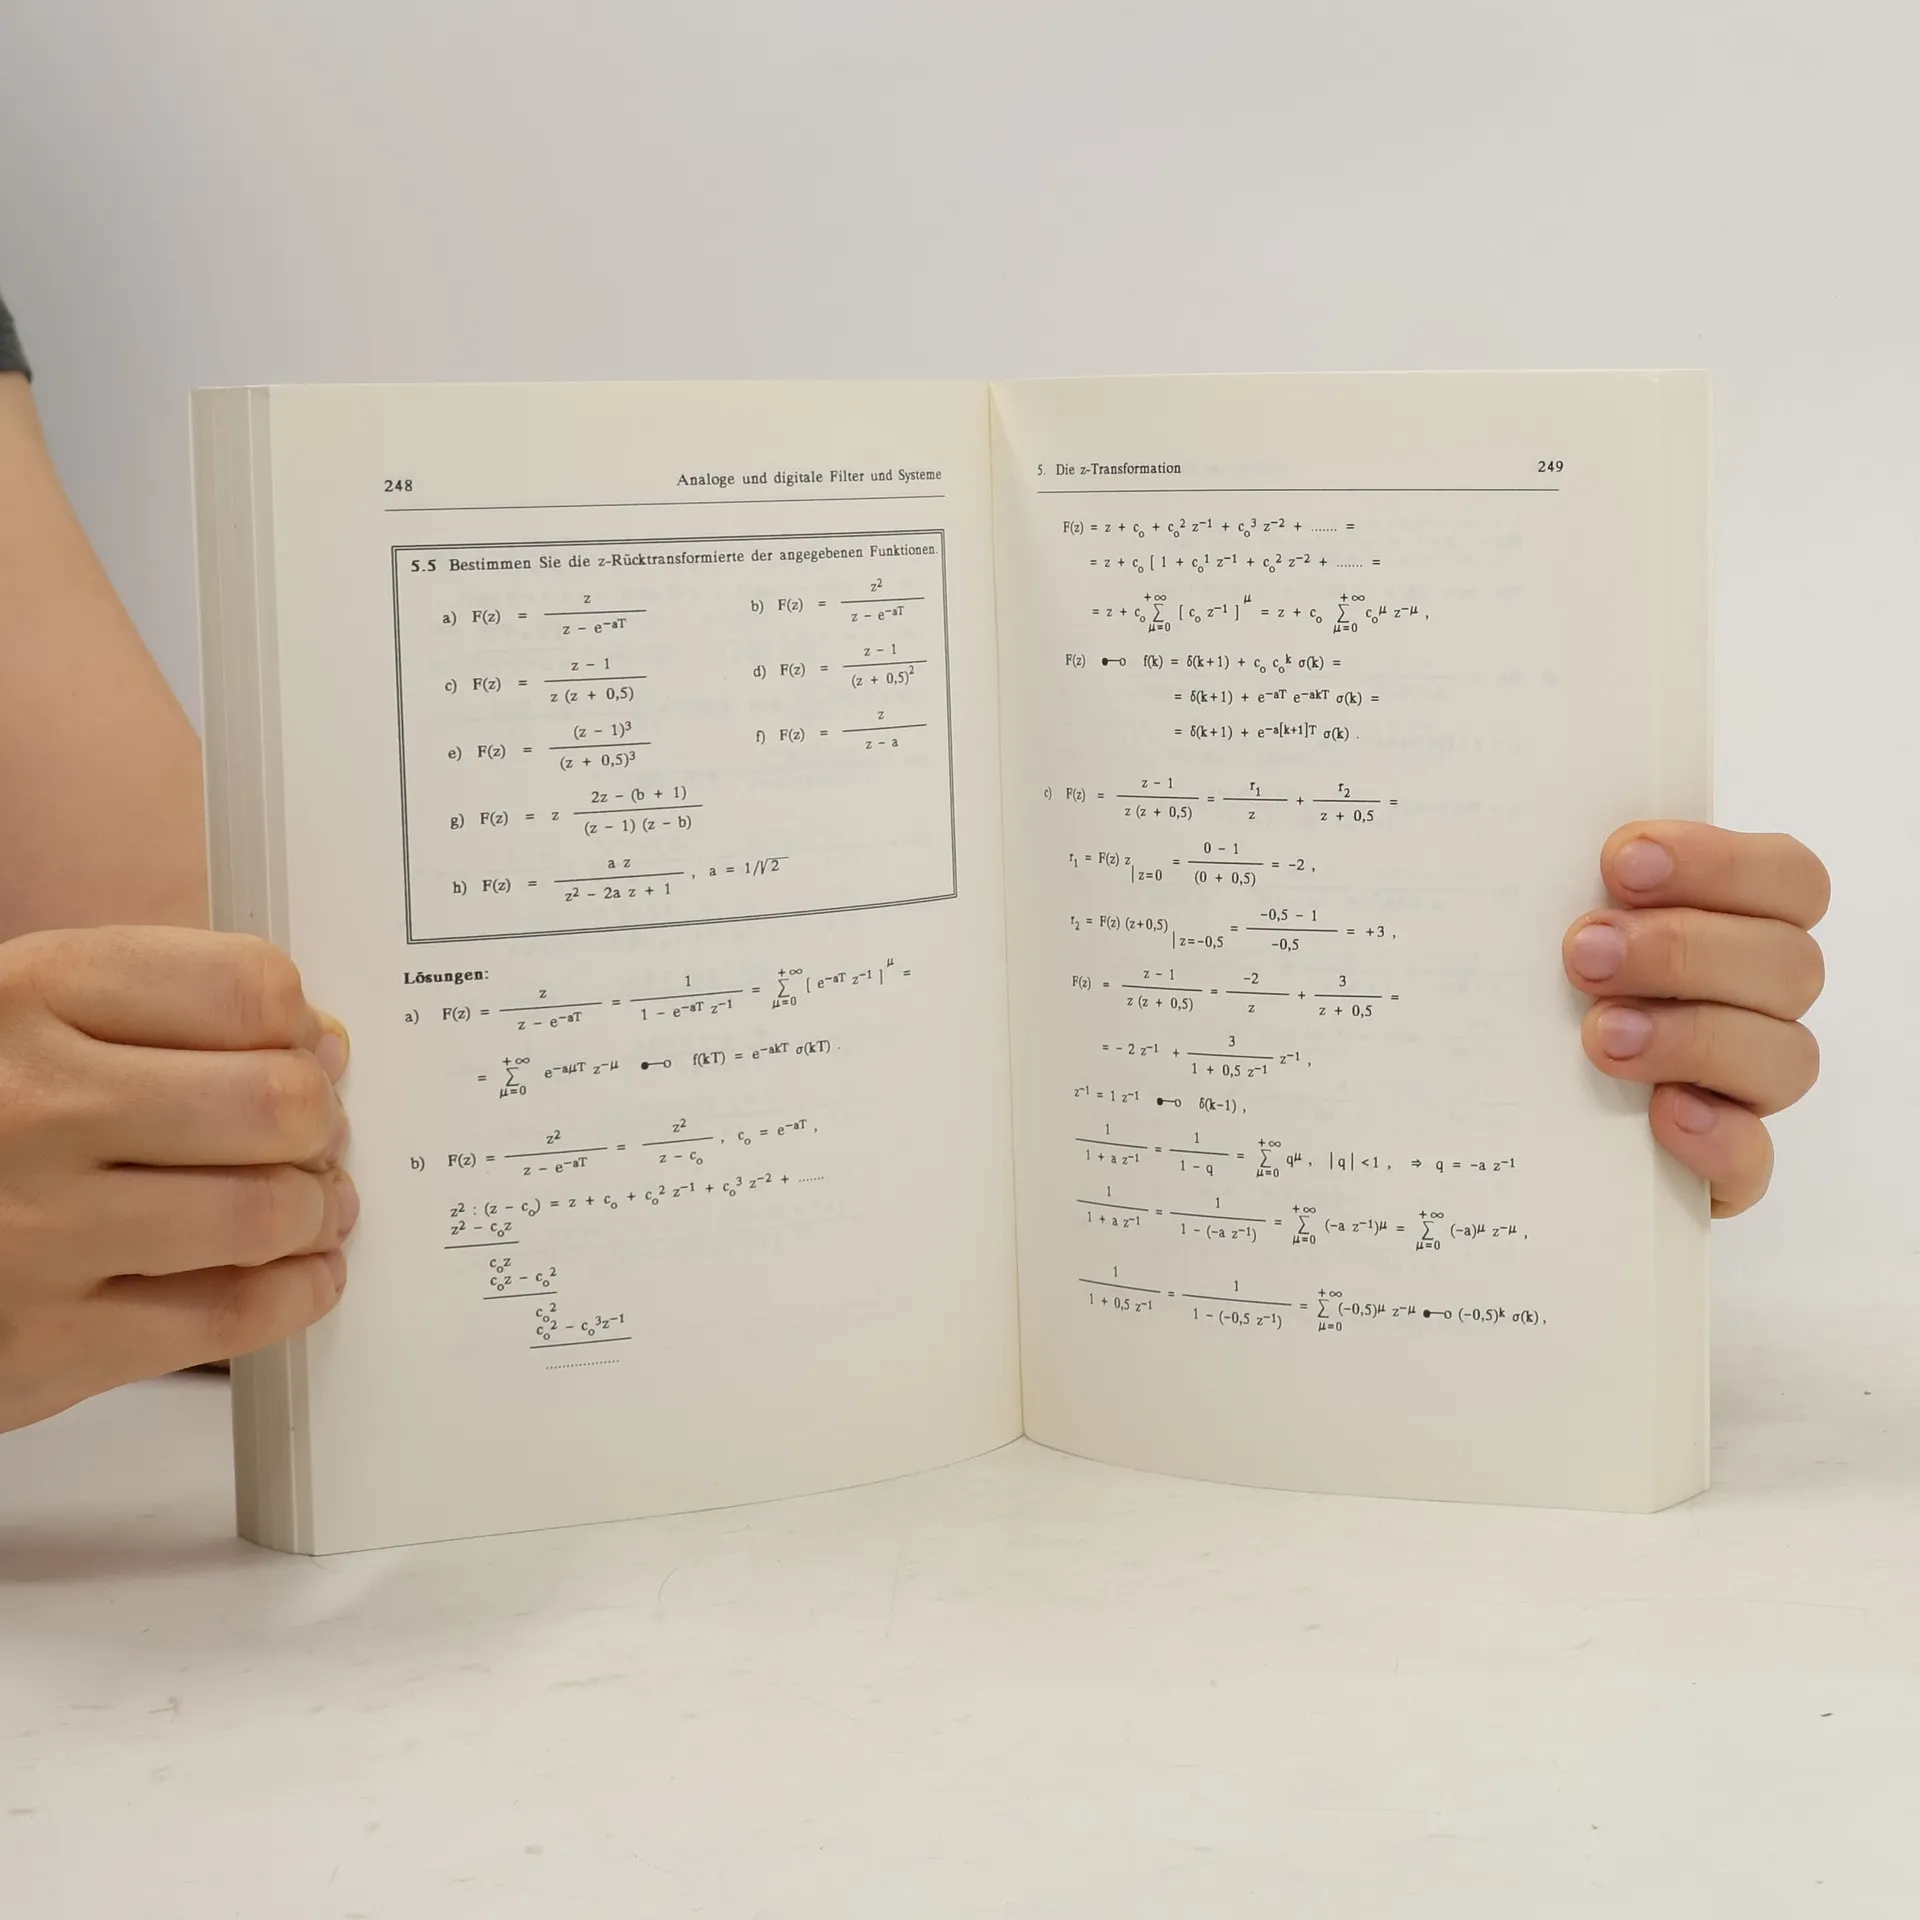 248 Analoge und digitale Filter und Systeme
5.5 Bestimmen Sie die z-Rücktransformierte der angegebenen Funktionen.
a) F(z) = z / (z − e^−aT) b) F(z) = z² / (z − e^−aT)
c) F(z) = (z − 1) / (z (z + 0,5)) d) F(z) = (z − 1) / (z + 0,5)²
e) F(z) = (z − 1)³ / (z + 0,5)³ f) F(z) = z / (z − a)
g) F(z) = z (2z − (b + 1)) / ((z − 1) (z − b))
h) F(z) = a z / (z² − 2a z + 1) , a = 1/√2
Lösungen:
a) F(z) = z / (z − e^−aT) = 1 / (1 − e^−aT z^−1) = Σ_{μ=0}^{+∞} [ e^−aT z^−1 ]^μ =
= Σ_{μ=0}^{+∞} e^−aμT z^−μ ●─○ f(kT) = e^−akT σ(kT) .
b) F(z) = z² / (z − e^−aT) = z² / (z − c₀) , c₀ = e^−aT ,
z² : (z − c₀) = z + c₀ + c₀² z^−1 + c₀³ z^−2 + .......
z² − c₀z
c₀z
c₀z − c₀²
c₀²
c₀² − c₀³z^−1
..................
5. Die z-Transformation 249
F(z) = z + c₀ + c₀² z^−1 + c₀³ z^−2 + ....... =
= z + c₀ [ 1 + c₀¹ z^−1 + c₀² z^−2 + ....... =
= z + c₀ Σ_{μ=0}^{+∞} [ c₀ z^−1 ]^μ = z + c₀ Σ_{μ=0}^{+∞} c₀^μ z^−μ ,
F(z) ●─○ f(k) = δ(k+1) + c₀ c₀^k σ(k) =
= δ(k+1) + e^−aT e^−akT σ(k) =
= δ(k+1) + e^−a[k+1]T σ(k) .
c) F(z) = (z − 1) / (z (z + 0,5)) = r₁ / z + r₂ / (z + 0,5) =
r₁ = F(z) z |z=0 = (0 − 1) / (0 + 0,5) = −2 ,
r₂ = F(z) (z+0,5) |z=−0,5 = (−0,5 − 1) / −0,5 = +3 ,
F(z) = (z − 1) / (z (z + 0,5)) = −2 / z + 3 / (z + 0,5) =
= − 2 z^−1 + 3 / (1 + 0,5 z^−1) z^−1 ,
z^−1 = 1 z^−1 ●─○ δ(k−1) ,
1 / (1 + a z^−1) = 1 / (1 − q) = Σ_{μ=0}^{+∞} q^μ , |q| <1 , ⇒ q = −a z^−1
1 / (1 + a z^−1) = 1 / (1 − (−a z^−1)) = Σ_{μ=0}^{+∞} (−a z^−1)^μ = Σ_{μ=0}^{+∞} (−a)^μ z^−μ ,
1 / (1 + 0,5 z^−1) = 1 / (1 − (−0,5 z^−1)) = Σ_{μ=0}^{+∞} (−0,5)^μ z^−μ ●─○ (−0,5)^k σ(k) ,